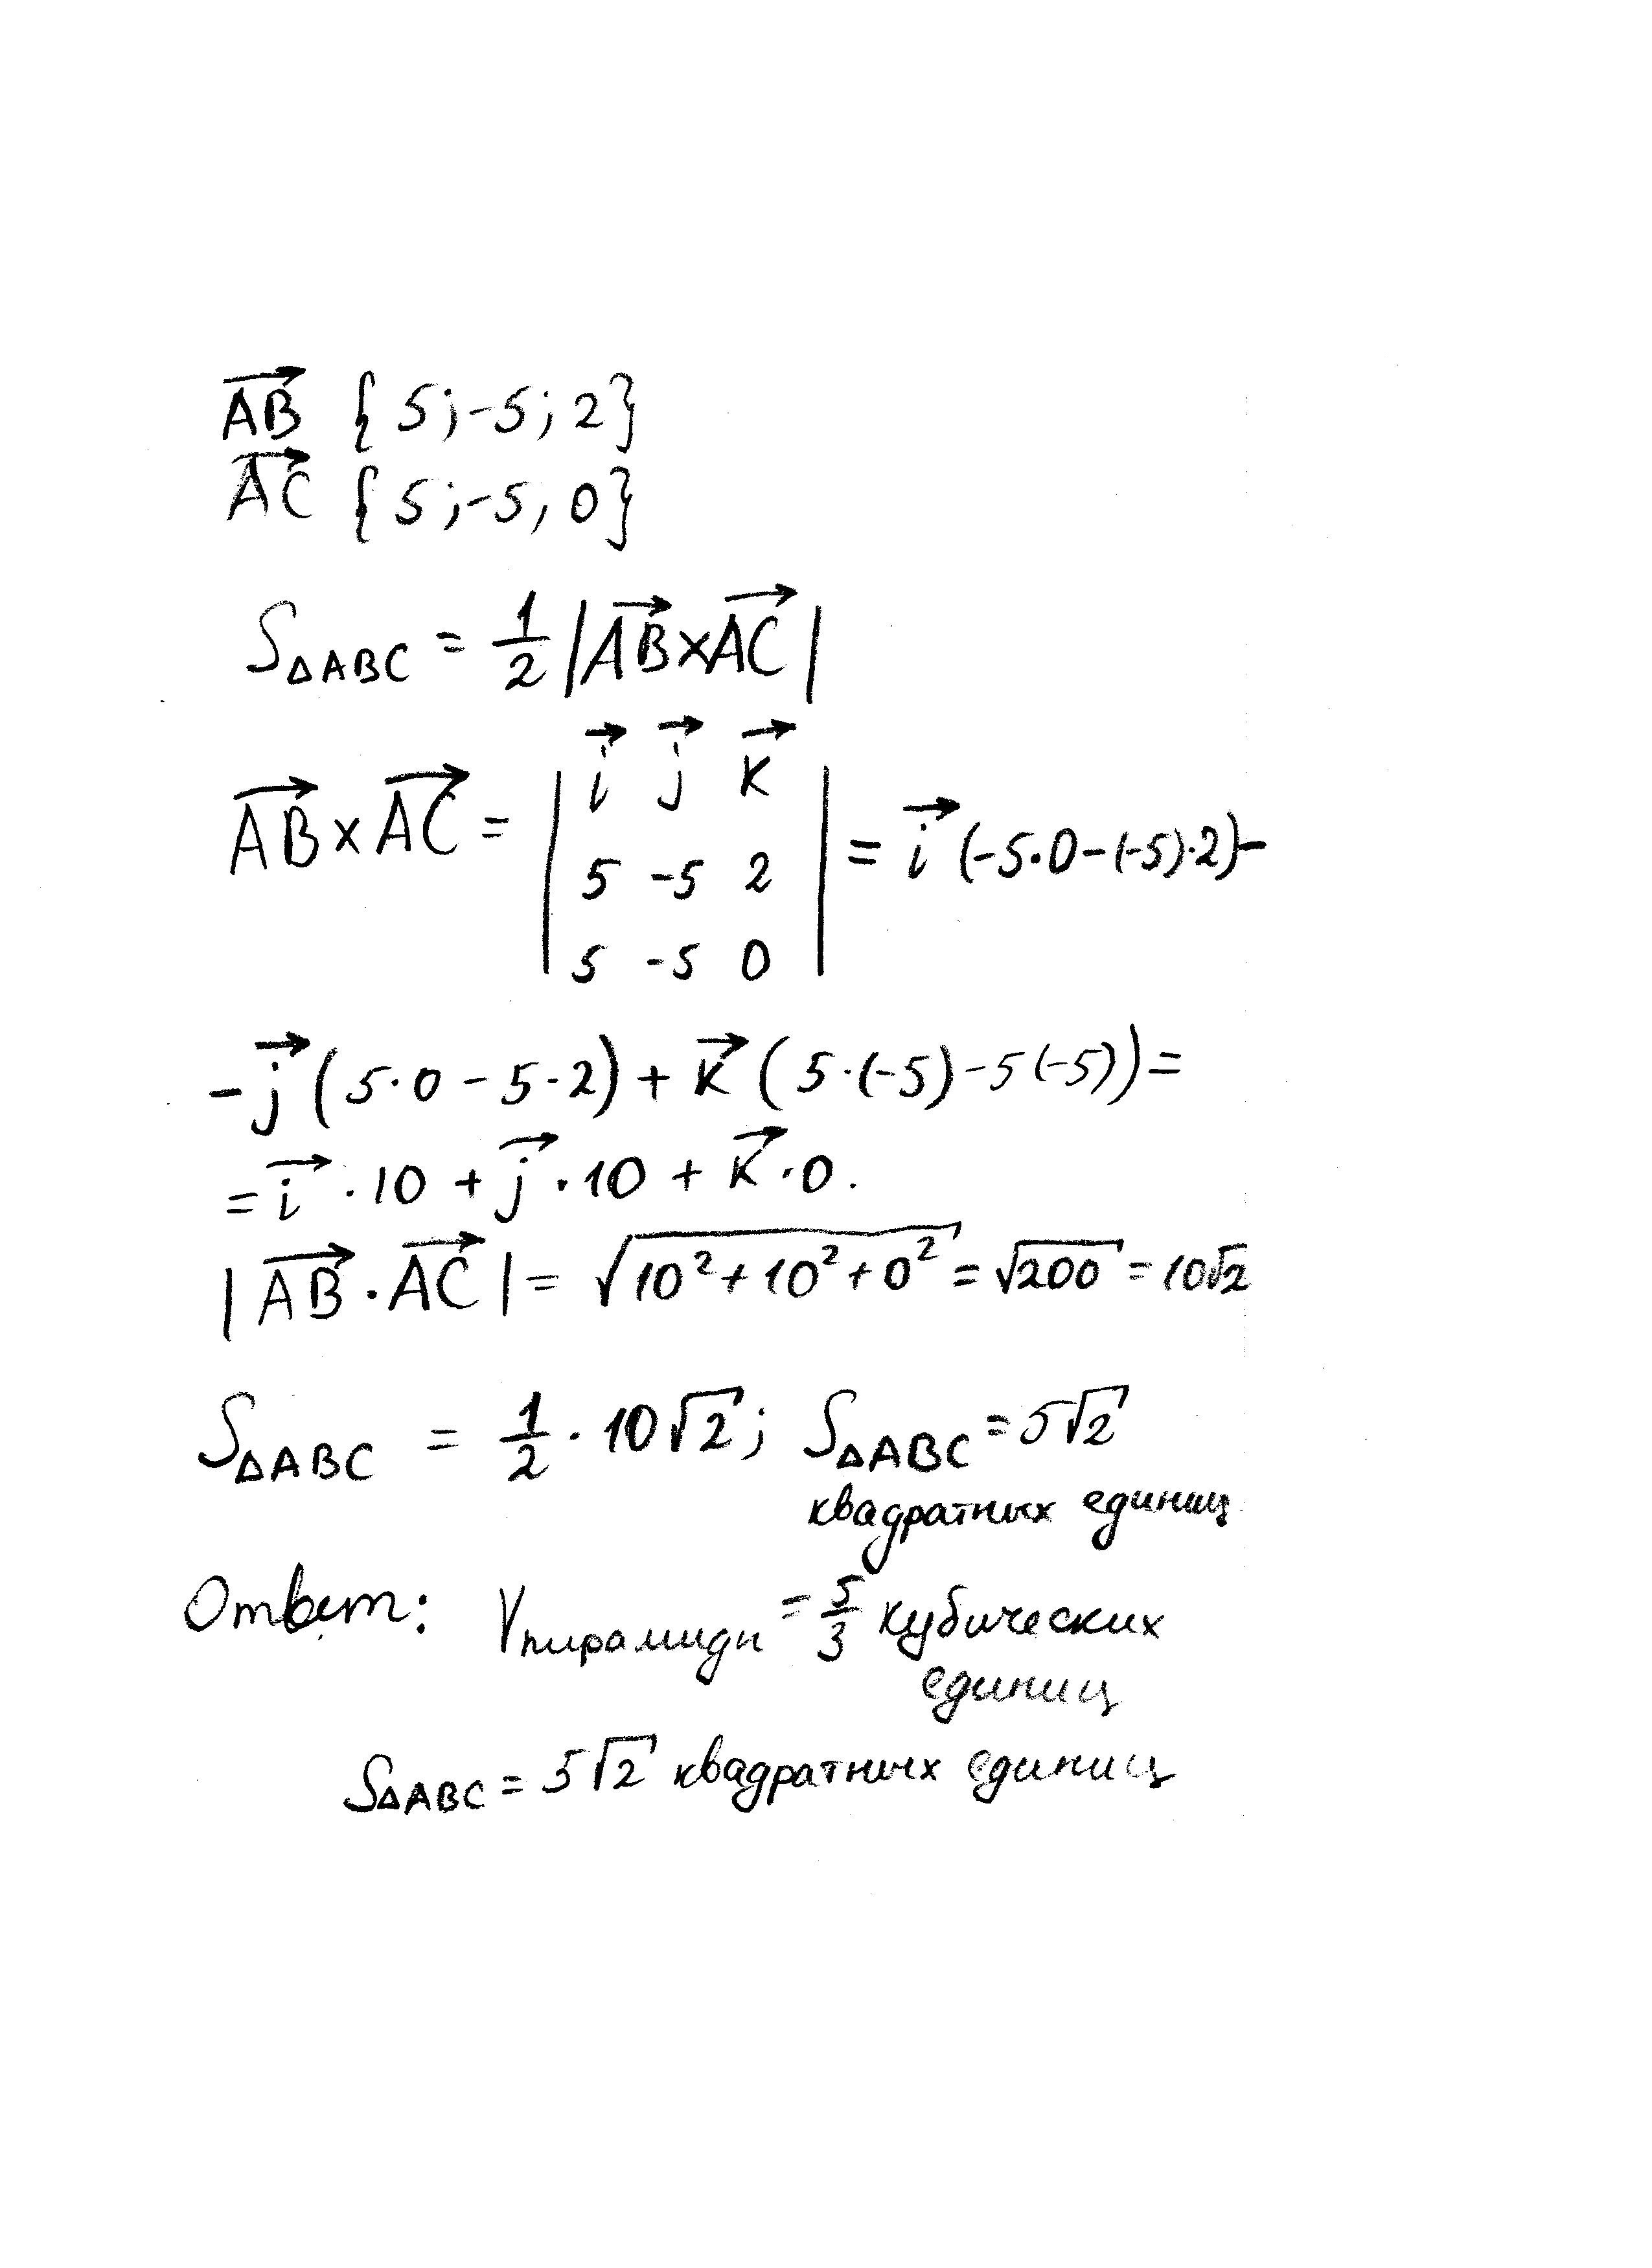 AB {5;-5;2}
AC {5;-5,0}
S△ABC = 1/2 |AB×AC|
i j k
AB×AC = | 5 -5 2 | = i(-5·0-(-5)·2)-
5 -5 0
-j(5·0-5·2)+k(5·(-5)-5(-5))=
=i·10+j·10+k·0.
|AB·AC|=√(10²+10²+0²)=√200=10√2
S△ABC = 1/2·10√2; S△ABC=5√2
квадратных единиц
Ответ: Vпирамиды=5/3 кубических
единиц
S△ABC=5√2 квадратных единиц